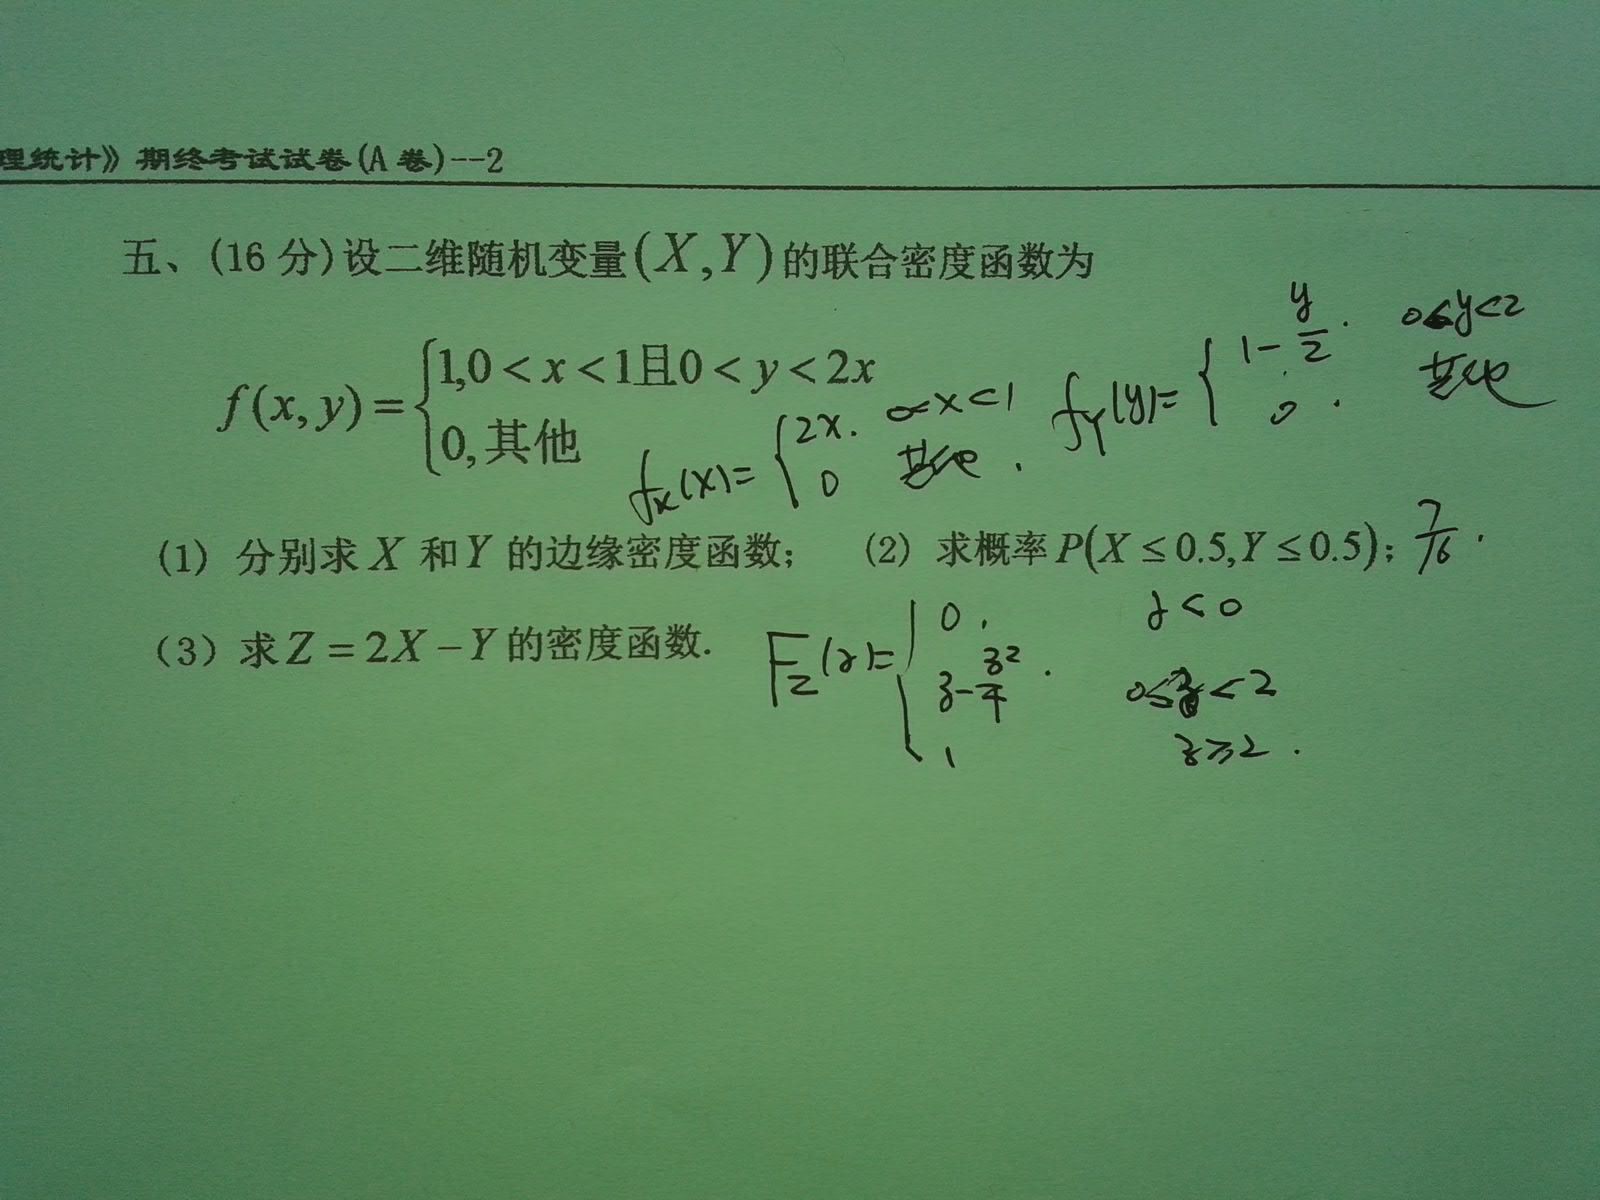 理统计》期终考试试卷(A 卷)--2
五、(16 分)设二维随机变量(X,Y)的联合密度函数为
f(x,y)={1,0<x<1且0<y<2x
0,其他
f_X(x)={2x. 0<x<1
0 其他.
f_Y(y)={1-y/2. 0≤y<2
0. 其他
(1) 分别求 X 和Y 的边缘密度函数; (2) 求概率P(X≤0.5,Y≤0.5); 7/16.
(3) 求Z=2X-Y的密度函数.
F_Z(z)={0, z<0
z-z²/4. 0≤z<2
1 z≥2.